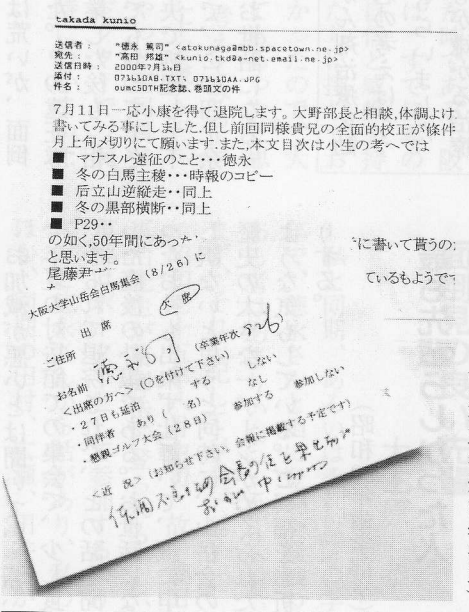 takada kunio
送信者: "徳永 篤司" <atokunaga@mbb.spacetown.ne.jp>
宛先: "高田 邦雄" <kunio.tkd@a-net.email.ne.jp>
送信日時: 2000年7月16日
添付: 07161DAB.TXT; 07161DAA.JPG
件名: oumc50TH記念誌、巻頭文の件
7月11日一応小康を得て退院します。大野部長と相談,体調よけ
書いてみる事にしました,但し前回同様貴兄の全面的校正が條件
月上旬〆切りにて願います.また,本文目次は小生の考へでは
■ マナスル遠征のこと・・・徳永
■ 冬の白馬主稜・・・時報のコピー
■ 后立山逆縦走・・同上
■ 冬の黒部横断・・同上
■ P29・・
の如く,50年間にあった
に書いて貰うの
と思います。
尾藤君
ているもようで
大阪大学山岳会白馬集会 (8/26) に
出席 欠席
ご住所
お名前 徳永 (卒業年次 S26)
<出席の方へ> (○を付けて下さい)
・27日も延泊 する しない
・同伴者 あり ( 名) なし
・懇親ゴルフ大会 (28日) 参加する 参加しない
<近 況> (お知らせ下さい。会報に掲載する予定です)
体調不